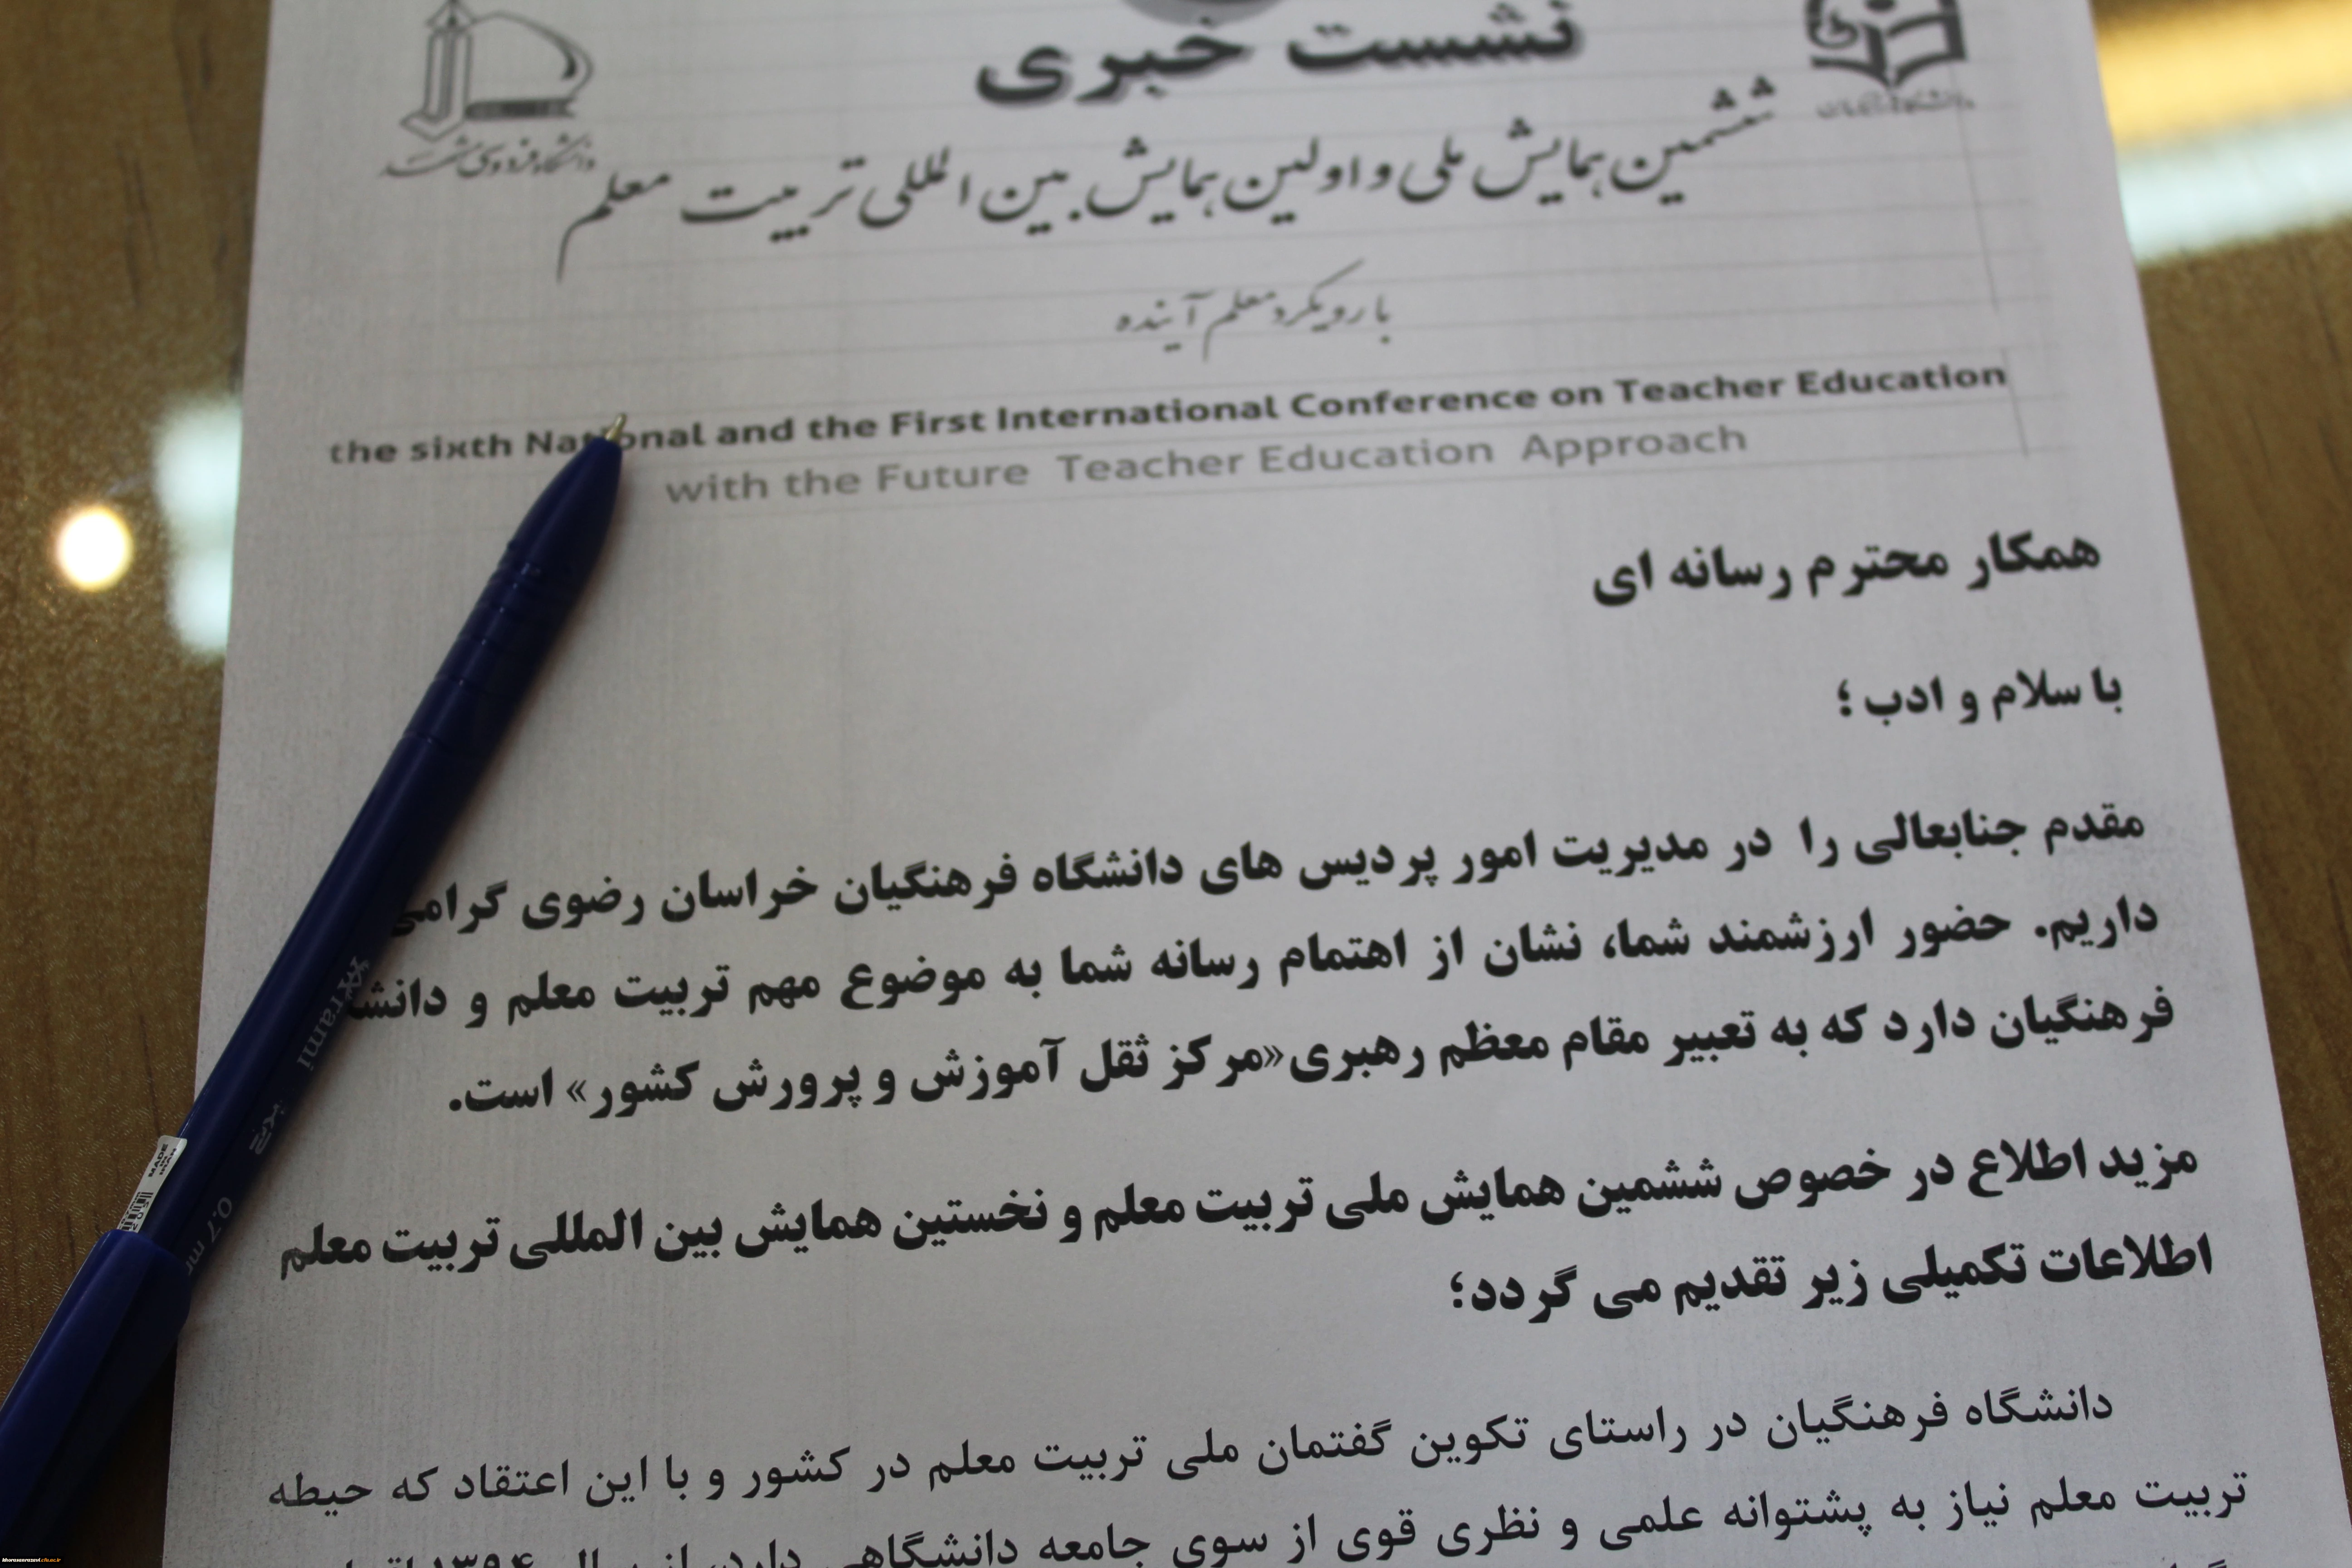 نشست خبری
دانشگاه فردوسی مشهد
ششمین همایش ملی و اولین همایش بین المللی تربیت معلم
با رویکرد معلم آینده
the sixth National and the First International Conference on Teacher Education
with the Future Teacher Education Approach
همکار محترم رسانه ای
با سلام و ادب ؛
مقدم جنابعالی را در مدیریت امور پردیس های دانشگاه فرهنگیان خراسان رضوی گرامی
داریم. حضور ارزشمند شما، نشان از اهتمام رسانه شما به موضوع مهم تربیت معلم و دانشـ
فرهنگیان دارد که به تعبیر مقام معظم رهبری«مرکز ثقل آموزش و پرورش کشور» است.
مزید اطلاع در خصوص ششمین همایش ملی تربیت معلم و نخستین همایش بین المللی تربیت معلم
اطلاعات تکمیلی زیر تقدیم می گردد؛
دانشگاه فرهنگیان در راستای تکوین گفتمان ملی تربیت معلم در کشور و با این اعتقاد که حیطه
تربیت معلم نیاز به پشتوانه علمی و نظری قوی از سوی جامعه دانشگاهی دارد، از سال ۱۳۹۴
MADE IN IRAN
0.7 m
khorasanrazavi.cfu.ac.ir